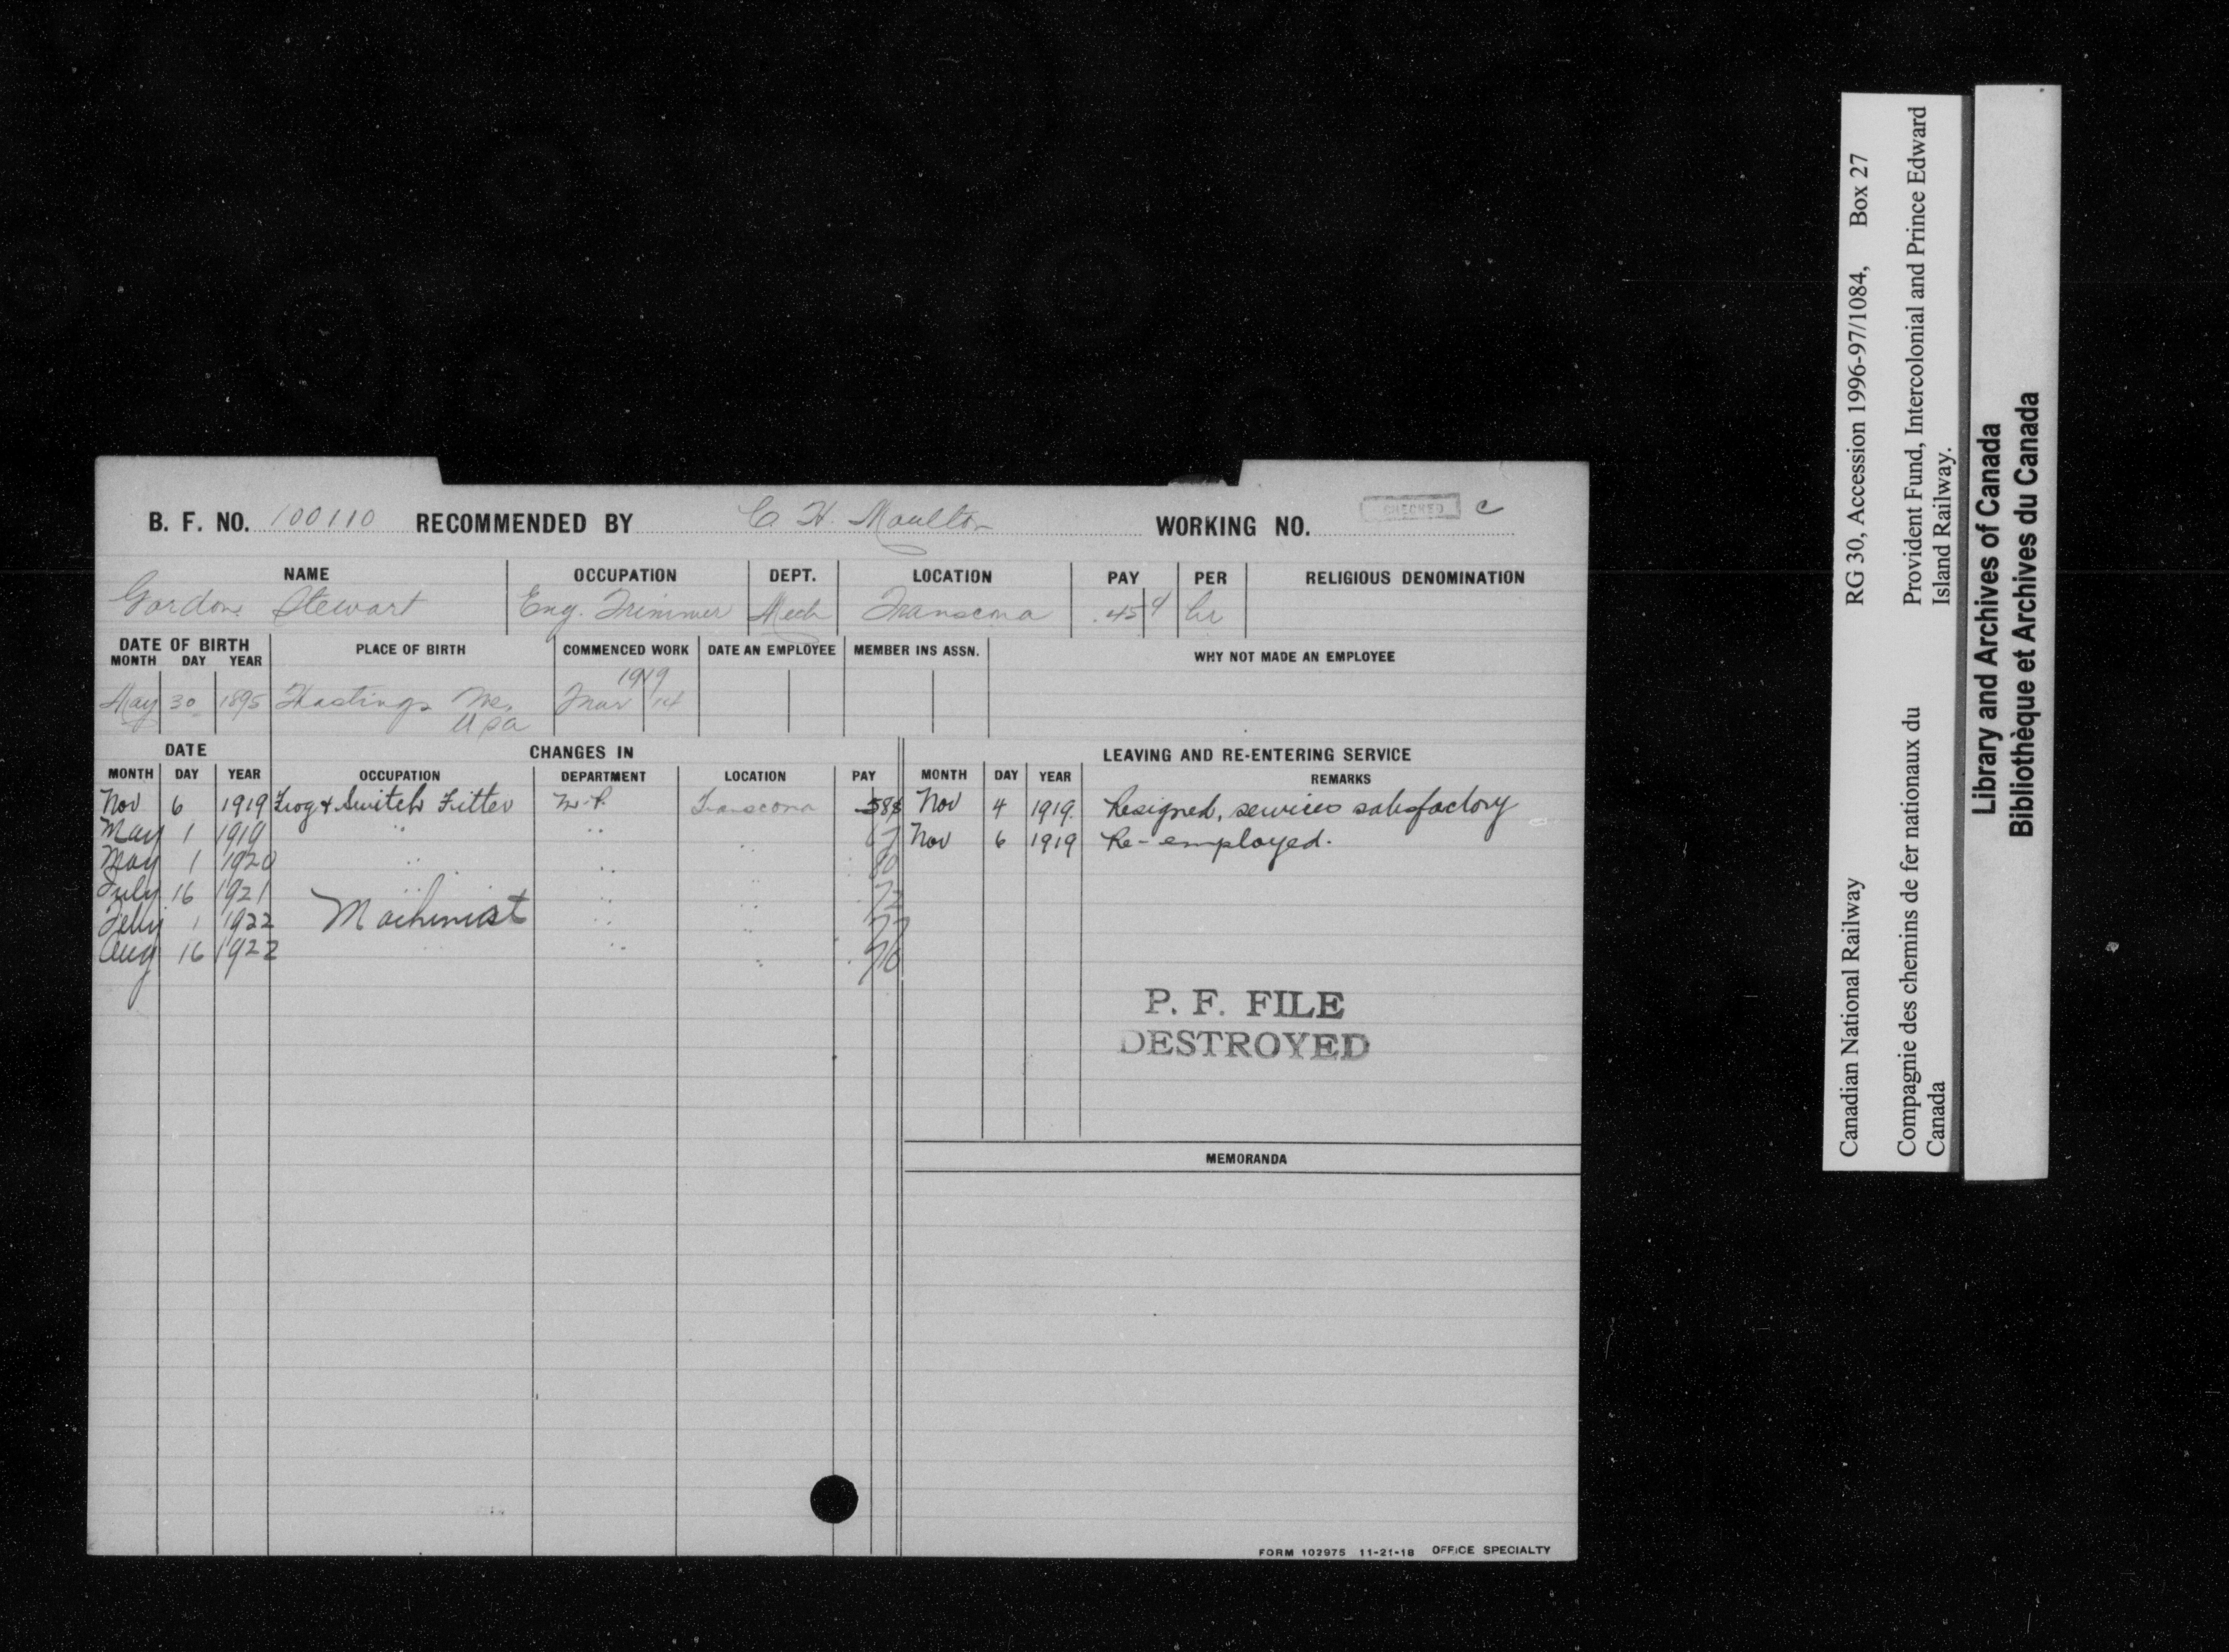 B. F. NO. 100110 RECOMMENDED BY C H. Moulton WORKING NO. CHECKED C
NAME OCCUPATION DEPT. LOCATION PAY PER RELIGIOUS DENOMINATION
Gordon Stewart Eng. Trimmer Mech Transcona .45 4 hr
DATE OF BIRTH PLACE OF BIRTH COMMENCED WORK DATE AN EMPLOYEE MEMBER INS ASSN. WHY NOT MADE AN EMPLOYEE
MONTH DAY YEAR
1919
May 30 1895 Hastings Me. Mar 14
USA
DATE CHANGES IN LEAVING AND RE-ENTERING SERVICE
MONTH DAY YEAR OCCUPATION DEPARTMENT LOCATION PAY MONTH DAY YEAR REMARKS
Nov 6 1919 Frog & Switch Fitter M.P. Transcona 58 Nov 4 1919. Resigned, services satisfactory
May 1 1919 " " " 67 Nov 6 1919 Re-employed.
May 1 1920 " " "
July 16 1921 " " "
Feby 1 1922 Machinist " " 77
Aug 16 1922 " " " 70
P. F. FILE
DESTROYED
MEMORANDA
FORM 102975 11-21-18 OFFICE SPECIALTY
Canadian National Railway RG 30, Accession 1996-97/1084, Box 27
Compagnie des chemins de fer nationaux du Provident Fund, Intercolonial and Prince Edward
Canada Island Railway.
Library and Archives of Canada
Bibliothèque et Archives du Canada